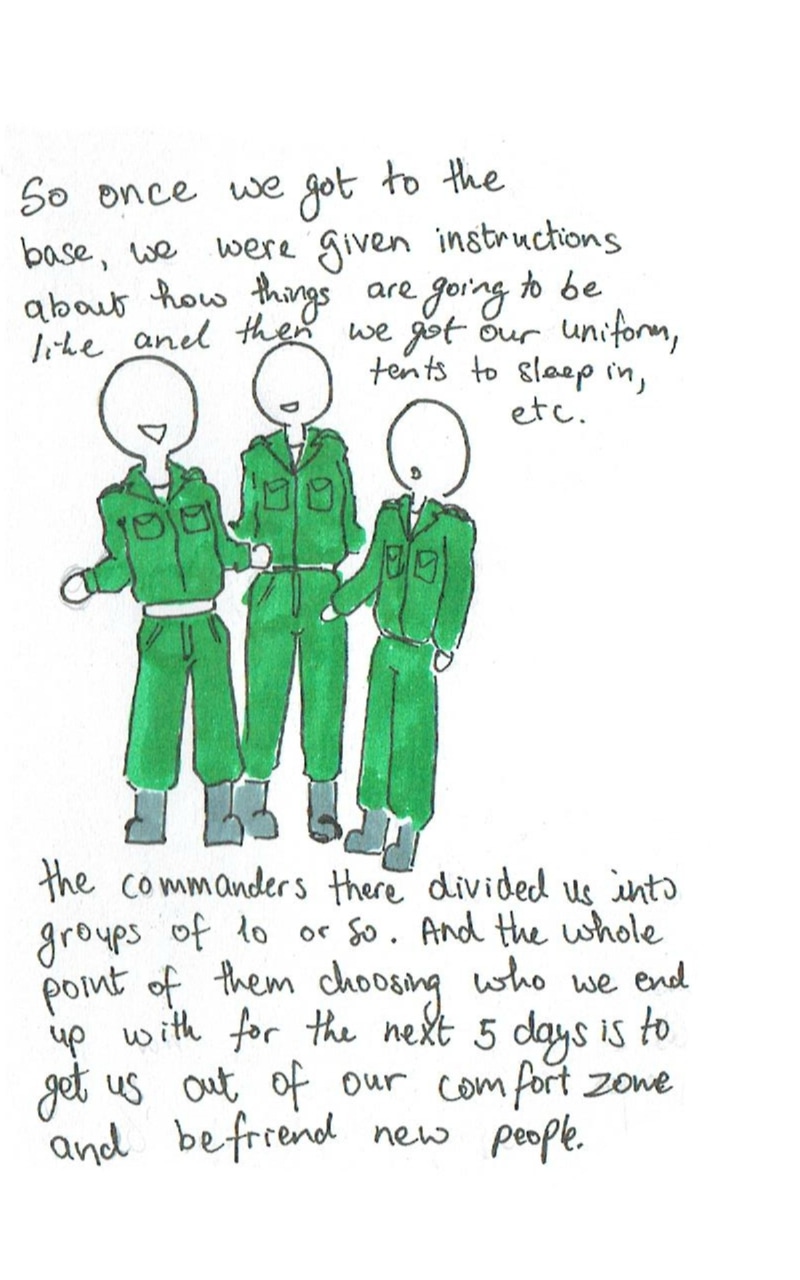 So once we got to the
base, we were given instructions
about how things are going to be
like and then we got our uniform,
tents to sleep in,
etc.
the commanders there divided us into
groups of 10 or so. And the whole
point of them choosing who we end
up with for the next 5 days is to
get us out of our comfort zone
and befriend new people.